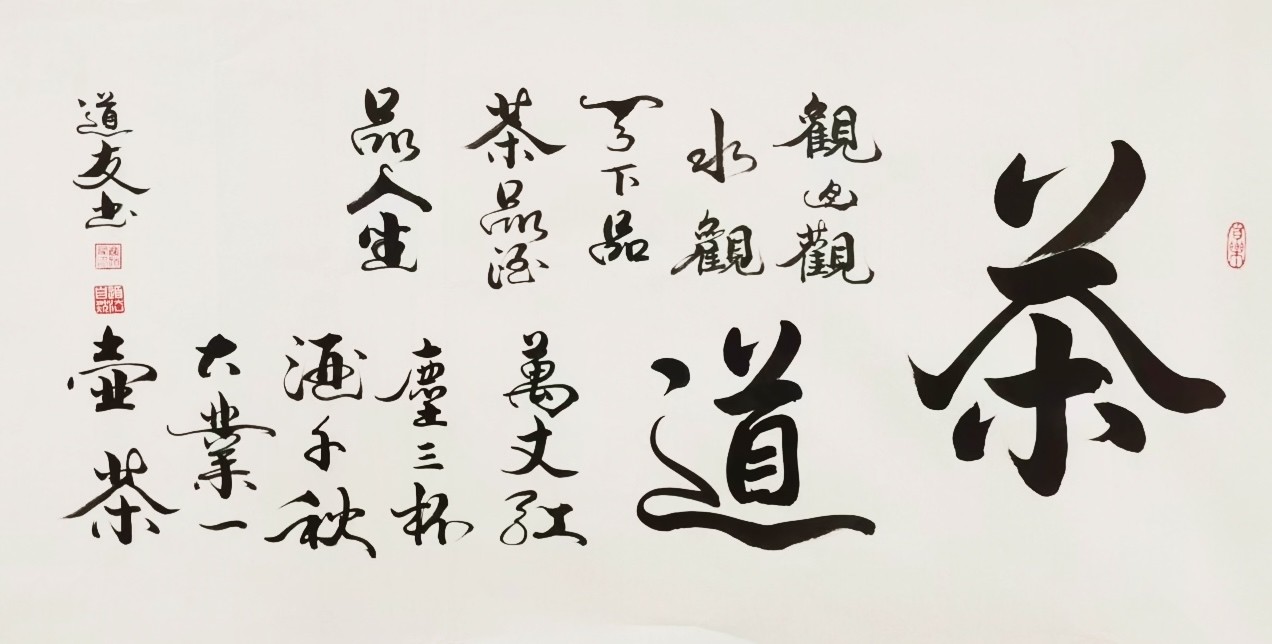 茶
道
觀山觀
水觀
天下品
茶品酒
品人生
萬丈紅
塵三杯
酒千秋
大業一
壺茶
道友書